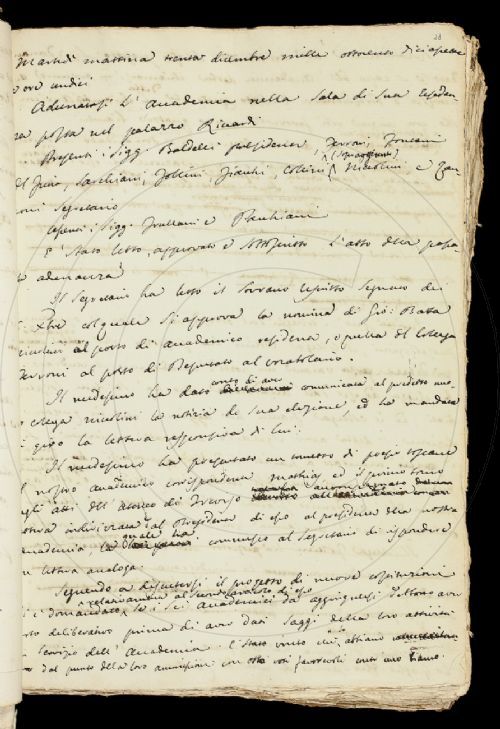 28
Martedì mattina trenta dicembre mille ottocento diciassette
ore undici
Adunatasi l'Accademia nella Sala di Sua Residen
za posta nel palazzo Riccardi
Presenti i Sigg. Baldelli presidente, Ferroni, Fontani
Del Furia, Sarchiani, Follini, Fiacchi, Collini, Niccolini, e Zan
noni Segretario
Assenti i Sigg. Frullani e
È stato letto, approvato e sottoscritto l'atto della passa
ta adunanza
Il Segretario ha letto il Sovrano rescritto segnato dei
Xbre col quale si approva la nomina di Gio: Batta
Niccolini al posto di Accademico residente, e quella del Collega
Ferroni al posto di Deputato al
Il medesimo ha dato conto di aver comunicata al predetto nuo
collega Niccolini la notizia di sua elezione, ed ha mandata
in giro la lettera responsiva di lui.
Il medesimo ha presentato un tometto di poesie toscane
del nostro accademico corrispondente ed il primo tomo
degli atti dell'Ateneo di Treviso
lettera indirizzata dal presidente di esso al presidente della nostra
Accademia la quale ha commesso al Segretario di rispondere
in lettera analoga.
Seguendo a discutersi il progetto di nuove costituzioni
relativamente al
domandato se i sei Accademici da aggiugnersi
voto deliberativo prima di aver dati saggi della loro attività
in servizio dell'Accademia. È stato vinto che abbiano
dal punto della loro ammissione con otto voti favorevoli contro uno